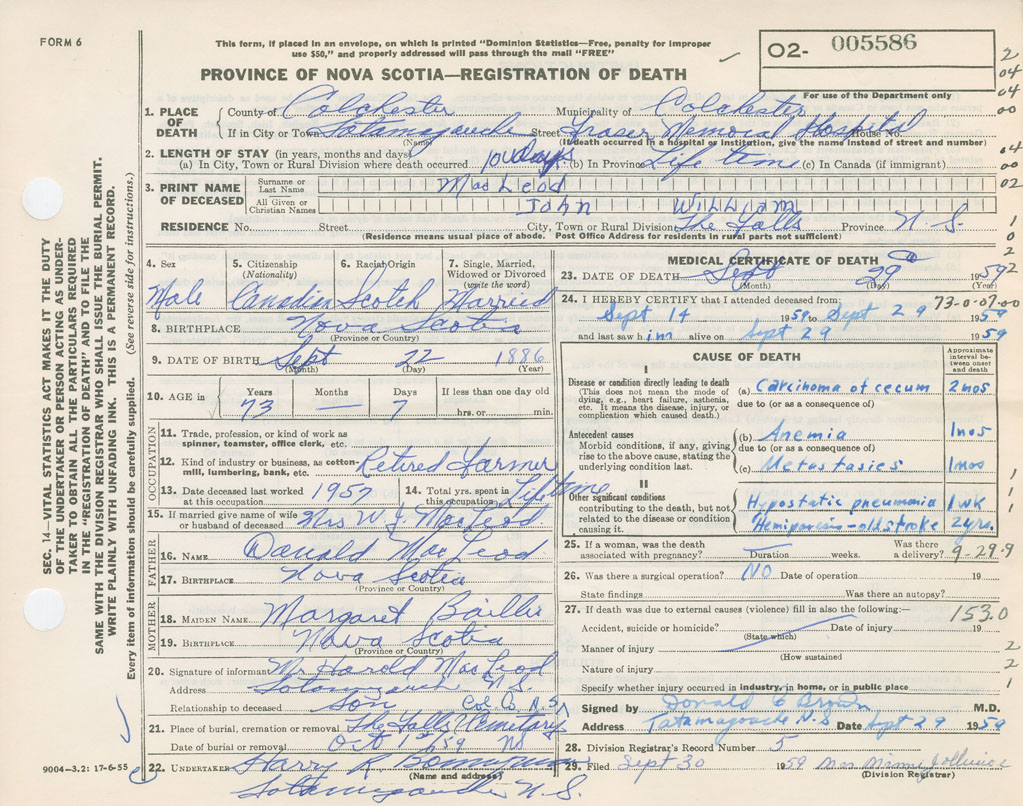 FORM 6
This form, if placed in an envelope, on which is printed "Dominion Statistics—Free, penalty for improper
use $50," and properly addressed will pass through the mail "FREE"
02- 005586
For use of the Department only
PROVINCE OF NOVA SCOTIA—REGISTRATION OF DEATH
2
04
04
00
04
00
02
1. PLACE OF DEATH County of Colchester Municipality of Colchester
If in City or Town Tatamagouche Street Fraser Memorial Hospital House No.
(Name) (If death occurred in a hospital or institution, give the name instead of street and number)
2. LENGTH OF STAY (in years, months and days)
(a) In City, Town or Rural Division where death occurred 10 Days (b) In Province Life time (c) In Canada (if immigrant)
3. PRINT NAME OF DECEASED Surname or Last Name MacLeod
All Given or Christian Names John William
RESIDENCE No. Street City, Town or Rural Division The Falls Province N.S.
(Residence means usual place of abode. Post Office Address for residents in rural parts not sufficient)
4. Sex 5. Citizenship (Nationality) 6. Racial Origin 7. Single, Married, Widowed or Divorced (write the word)
Male Canadian Scotch Married
8. BIRTHPLACE Nova Scotia
(Province or Country)
9. DATE OF BIRTH Sept 22 1886
(Month) (Day) (Year)
10. AGE in Years Months Days If less than one day old
73 — 7 hrs. or min.
OCCUPATION
11. Trade, profession, or kind of work as
spinner, teamster, office clerk, etc.
12. Kind of industry or business, as cotton-
mill, lumbering, bank, etc. Retired Farmer
13. Date deceased last worked at this occupation 1957 14. Total yrs. spent in this occupation Lifetime
15. If married give name of wife
or husband of deceased Mrs W J MacLeod
FATHER
16. NAME Donald MacLeod
17. BIRTHPLACE Nova Scotia
(Province or Country)
MOTHER
18. MAIDEN NAME Margaret Baillie
19. BIRTHPLACE Nova Scotia
(Province or Country)
20. Signature of informant Mr Harold MacLeod
Address Tatamagouche N.S.
Relationship to deceased Son Col. Co. N.S.
21. Place of burial, cremation or removal The Falls Cemetary
Date of burial or removal Oct 1 1959 NS
22. UNDERTAKER Harry R
(Name and address)
Tatamagouche N.S.
MEDICAL CERTIFICATE OF DEATH
23. DATE OF DEATH Sept 29 1959
(Month) (Day) (Year)
24. I HEREBY CERTIFY that I attended deceased from: 73-0-07-00
Sept 14 1959 to Sept 29 1959
and last saw him alive on Sept 29 1959
CAUSE OF DEATH
Approximate interval between onset and death
I
Disease or condition directly leading to death
(This does not mean the mode of
dying, e.g., heart failure, asthenia,
etc. It means the disease, injury, or
complication which caused death.)
(a) Carcinoma of cecum 2 mos
due to (or as a consequence of)
Antecedent causes
Morbid conditions, if any, giving
rise to the above cause, stating the
underlying condition last.
(b) Anemia 1 mos
due to (or as a consequence of)
(c) Metastasics 1 mos
II
Other significant conditions
contributing to the death, but not
related to the disease or condition
causing it.
Hypostatic pneumonia 1 wk
Hemiparesis - old stroke 2 yrs.
25. If a woman, was the death
associated with pregnancy? Duration weeks. Was there a delivery? 9-29.9
26. Was there a surgical operation? NO Date of operation 19
State findings Was there an autopsy?
27. If death was due to external causes (violence) fill in also the following:— 153.0
Accident, suicide or homicide? Date of injury 19
(State which)
Manner of injury
(How sustained)
Nature of injury
Specify whether injury occurred in industry, in home, or in public place
Signed by Donald C Brown M.D.
Address Tatamagouche N.S Date Sept 29 1959
28. Division Registrar's Record Number 5
29. Filed Sept 30 1959 Mrs
(Division Registrar)
SEC. 14—VITAL STATISTICS ACT MAKES IT THE DUTY
OF THE UNDERTAKER OR PERSON ACTING AS UNDER-
TAKER TO OBTAIN ALL THE PARTICULARS REQUIRED
IN THE "REGISTRATION OF DEATH" AND TO FILE THE
SAME WITH THE DIVISION REGISTRAR WHO SHALL ISSUE THE BURIAL PERMIT.
WRITE PLAINLY WITH UNFADING INK. THIS IS A PERMANENT RECORD.
Every item of information should be carefully supplied. (See reverse side for instructions.)
9004—3.2: 17-6-55